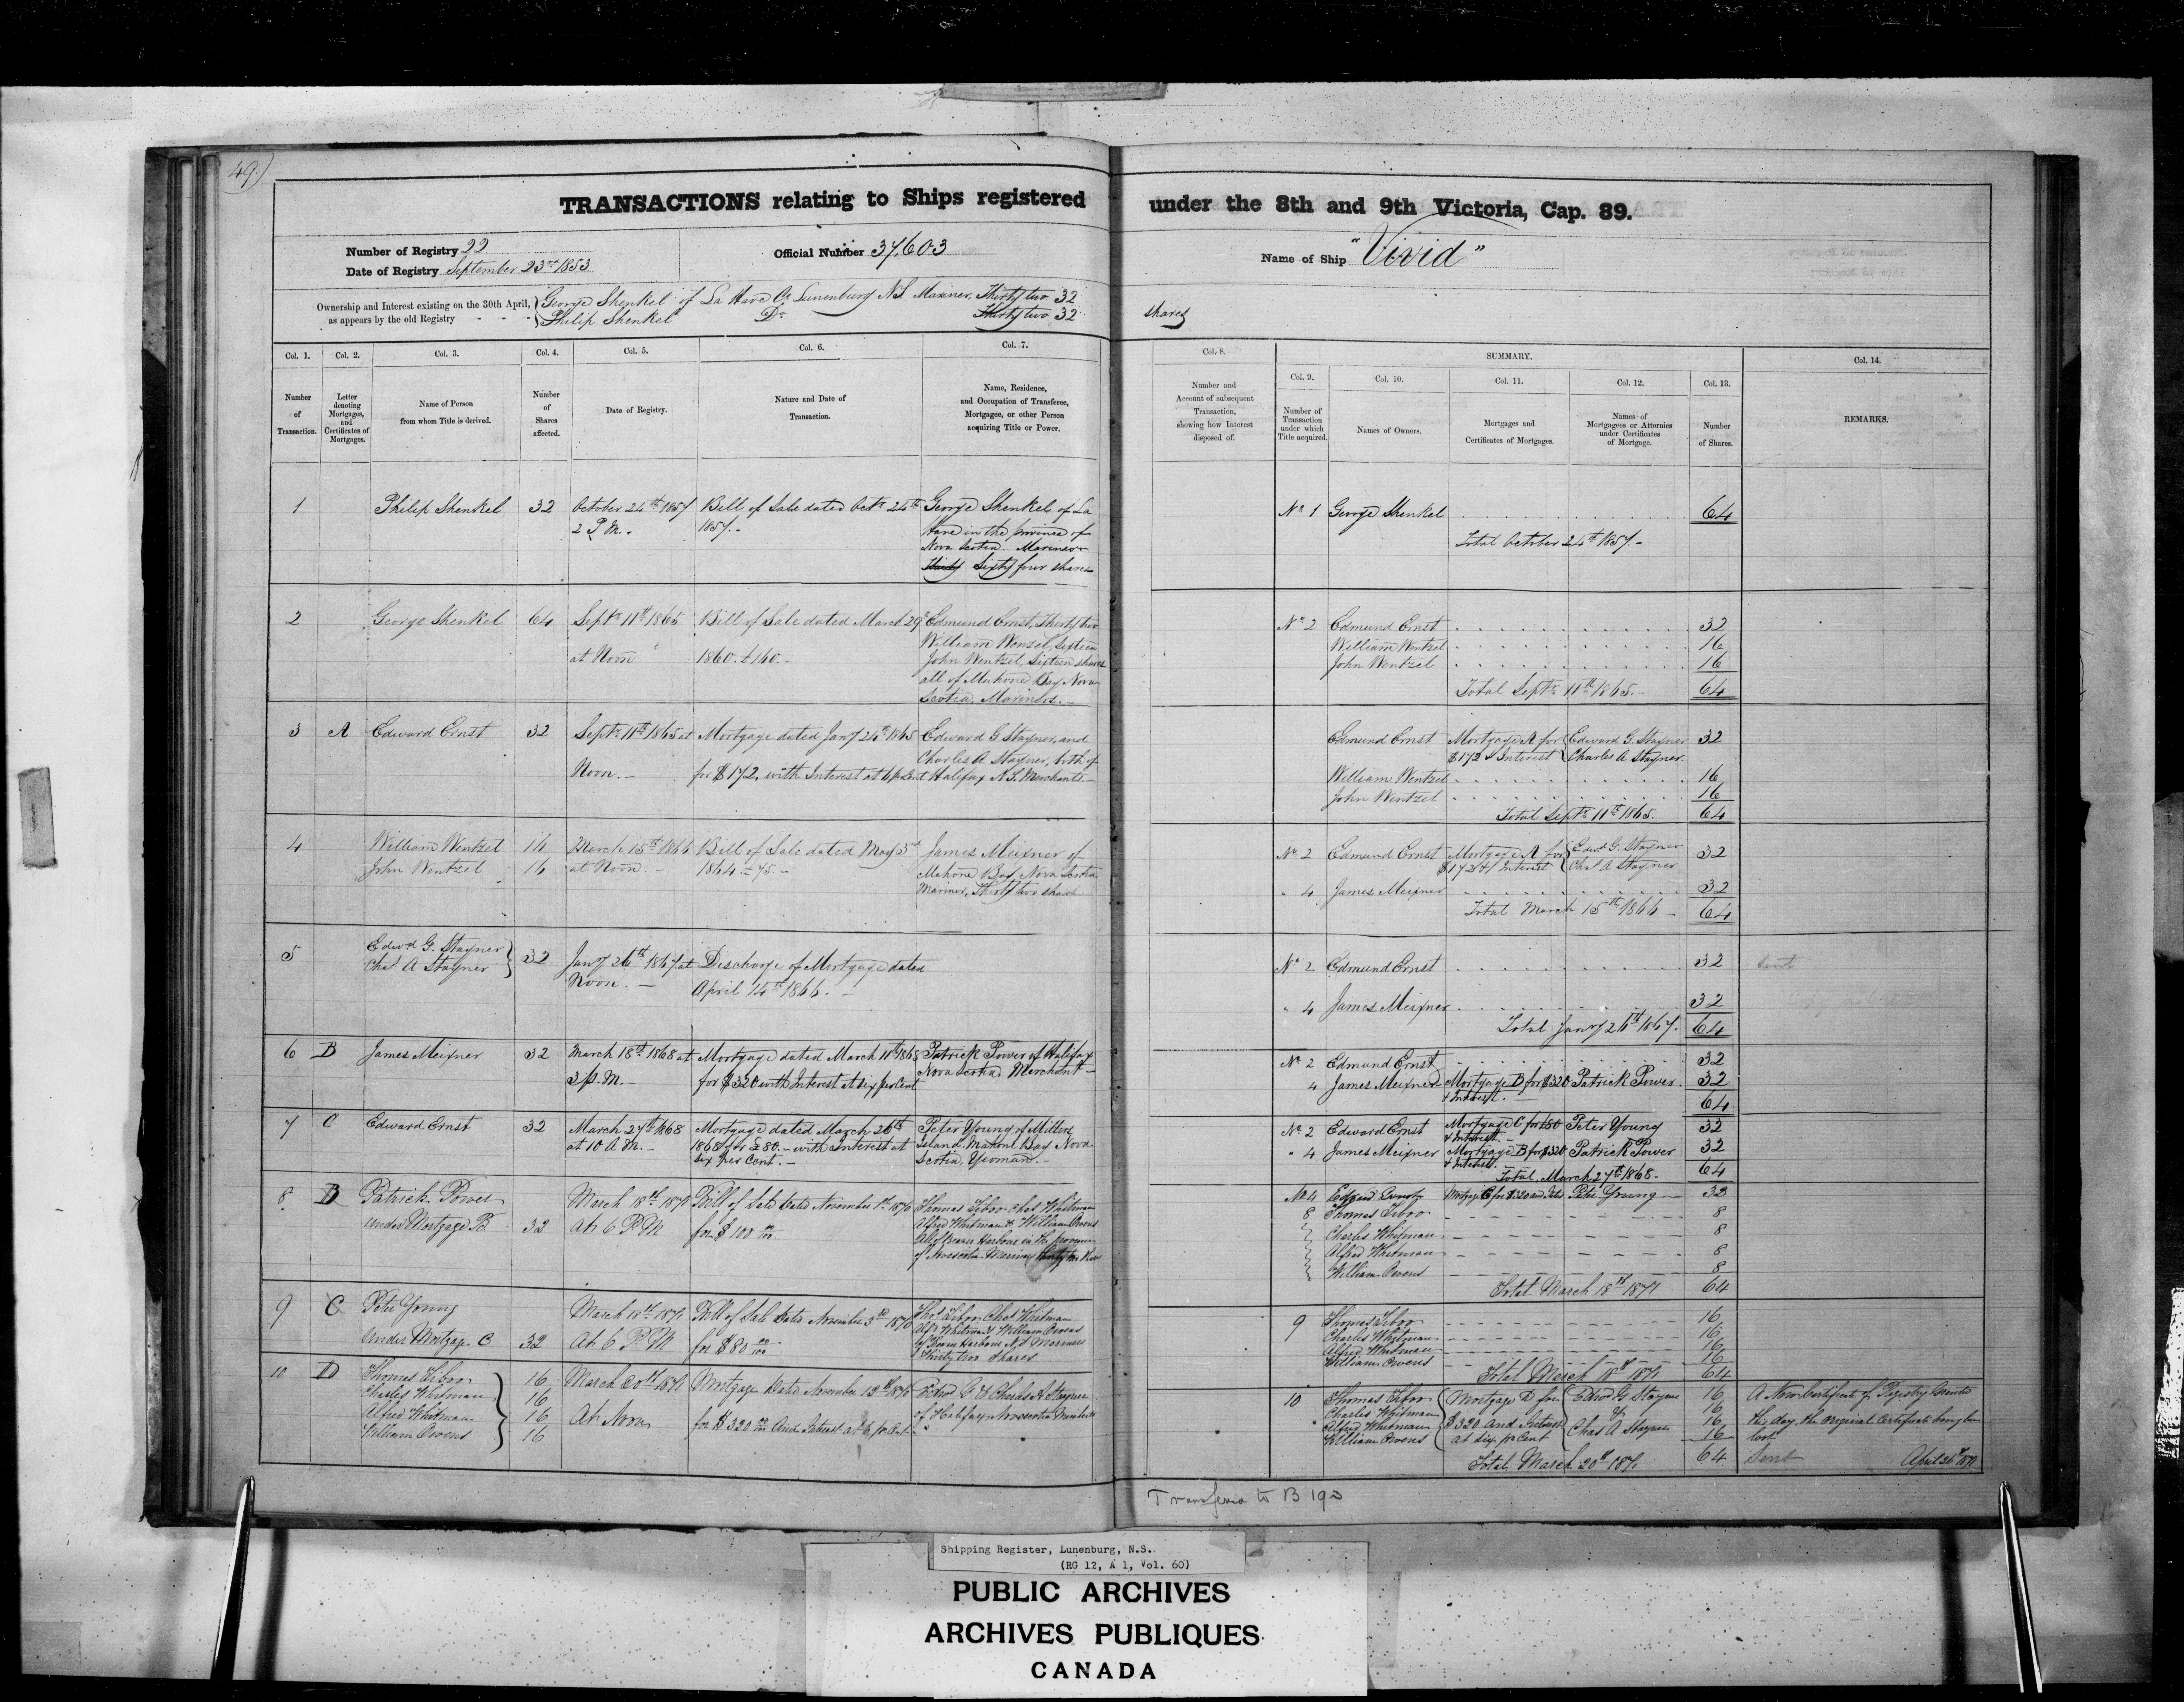 49.)
TRANSACTIONS relating to Ships registered under the 8th and 9th Victoria, Cap. 89.
Number of Registry 22
Date of Registry September 23rd 1853
Official Number 37,603
Name of Ship "Vivid"
Ownership and Interest existing on the 30th April, as appears by the old Registry
George Shenkel of La Have Co Lunenburg N.S. Mariner, Thirty two 32
Philip Shenkel Do Thirty two 32 shares
Col. 1. Number of Transaction.
Col. 2. Letter denoting Mortgages, and Certificates of Mortgages.
Col. 3. Name of Person from whom Title is derived.
Col. 4. Number of Shares affected.
Col. 5. Date of Registry.
Col. 6. Nature and Date of Transaction.
Col. 7. Name, Residence, and Occupation of Transferee, Mortgagee, or other Person acquiring Title or Power.
Col. 8. Number and Account of subsequent Transaction, showing how Interest disposed of.
SUMMARY.
Col. 9. Number of Transaction under which Title acquired.
Col. 10. Names of Owners.
Col. 11. Mortgages and Certificates of Mortgages.
Col. 12. Names of Mortgagees or Attornies under Certificates of Mortgage.
Col. 13. Number of Shares.
Col. 14. REMARKS.
1
Philip Shenkel
32
October 24th 1857
2 P.M.
Bill of Sale dated Octr 24th
1857.-
George Shenkel of La
Have in the province of
Nova Scotia. Mariner
Thirty Sixty four shares
No 1 George Shenkel 64
Total October 24th 1857.-
2
George Shenkel
64
Septr 11th 1865
at Noon
Bill of Sale dated March 29
1860. £160.-
Edmund Ernst, Thirty two
William Wenzel, Sixteen
John Wentzel, Sixteen shares
all of Mahone Bay Nova
Scotia, Mariners.-
No 2 Edmund Ernst 32
William Wentzel 16
John Wentzel 16
Total Septr 11th 1865.- 64
3 A
Edward Ernst
32
Septr 11th 1865 at
Noon.-
Mortgage dated Jany 24th 1865
for $172, with Interest at 6 p Cent
Edward G Stayner, and
Charles A Stayner, both of
Halifax N.S. Merchants-
Edmund Ernst Mortgage A for Edward G. Stayner 32
$172 & Interest Charles A Stayner.
William Wentzel 16
John Wentzel 16
Total Septr 11th 1865. 64
4
William Wentzel 16
John Wentzel 16
March 15th 1866
at Noon.-
Bill of Sale dated May 3rd
1864 £75.-
James Meixner of
Mahone Bay Nova Scotia
Mariner, Thirty two shares
No 2 Edmund Ernst Mortgage A for Edwd G. Stayner 32
$172 & Interest Chas A Stayner
" 4 James Meixner 32
Total March 15th 1866 64
5
Edwd G. Stayner
Chas A Stayner
32
Jany 26th 1867 at
Noon.-
Discharge of Mortgage dated
April 14th 1866.-
No 2 Edmund Ernst 32
" 4 James Meixner 32
Total Jany 26th 1867. 64
sent
6 B
James Meixner
32
March 18th 1868 at
3 p.M.-
Mortgage dated March 11th 1868
for $320 with Interest at six per Cent
Patrick Power of Halifax
Nova Scotia, Merchant-
No 2 Edmund Ernst 32
4 James Meixner Mortgage B for $320 Patrick Power. 32
& Interest.- 64
7 C
Edward Ernst
32
March 27th 1868
at 10 A.M.-
Mortgage dated March 26th
1868 for £80.- with Interest at
six per Cent.-
Peter Young of
Island, Mahone Bay Nova
Scotia, Yeoman.-
No 2 Edward Ernst Mortgage C for £80 Peter Young 32
& Interest.-
" 4 James Meixner Mortgage B for $320 Patrick Power 32
& Interest.
Total March 27th 1868.- 64
8 D
Patrick Power
Under Mortgage B
32
March 18th 1871
At 6 P M
Bill of Sale Dated November 1st 1870
for $100 00/100
Thomas Chas Whitman
Alfred Whitman & William Owens
All of Harbour in the province
of Novascotia Mariners Thirty two
No 4 Peter Young 32
8 Thomas 8
Charles Whitman 8
Alfred Whitman 8
William Owens 8
Total March 18th 1871 64
9 C
Peter Young
Under Mortgage C
32
March 18th 1871
At 6 P M
Bill of Sale Dated November 3rd 1870
for $80 00/100
Thos Chas Whitman
Alfd Whitman & William Owens
of Harbour N S Mariners
Thirty two Shares
9 Thomas 16
Charles Whitman 16
Alfred Whitman 16
William Owens 16
Total March 18th 1871 64
10 D
Thomas 16
Charles Whitman 16
Alfred Whitman 16
William Owens 16
March 20th 1871
At Noon
Mortgage Dated November 12th 1870
for $320 00/100 And Interest at 6 pr Cent
Edwd G & Charles A Stayner
of Halifax Novascotia Merchants
10 Thomas Mortgage D for Edwd G Stayner 16
Charles Whitman & 16
Alfred Whitman $320 and Interest 16
William Owens at six pr Cent Chas A Stayner 16
Total March 20th 1871 64
A New Certificate of Registry Granted
this day, the Original Certificate being
lost
Sent April 26th 1871
Transferred to B 190
Shipping Register, Lunenburg, N.S.
(RG 12, A 1, Vol. 60)
PUBLIC ARCHIVES
ARCHIVES PUBLIQUES
CANADA